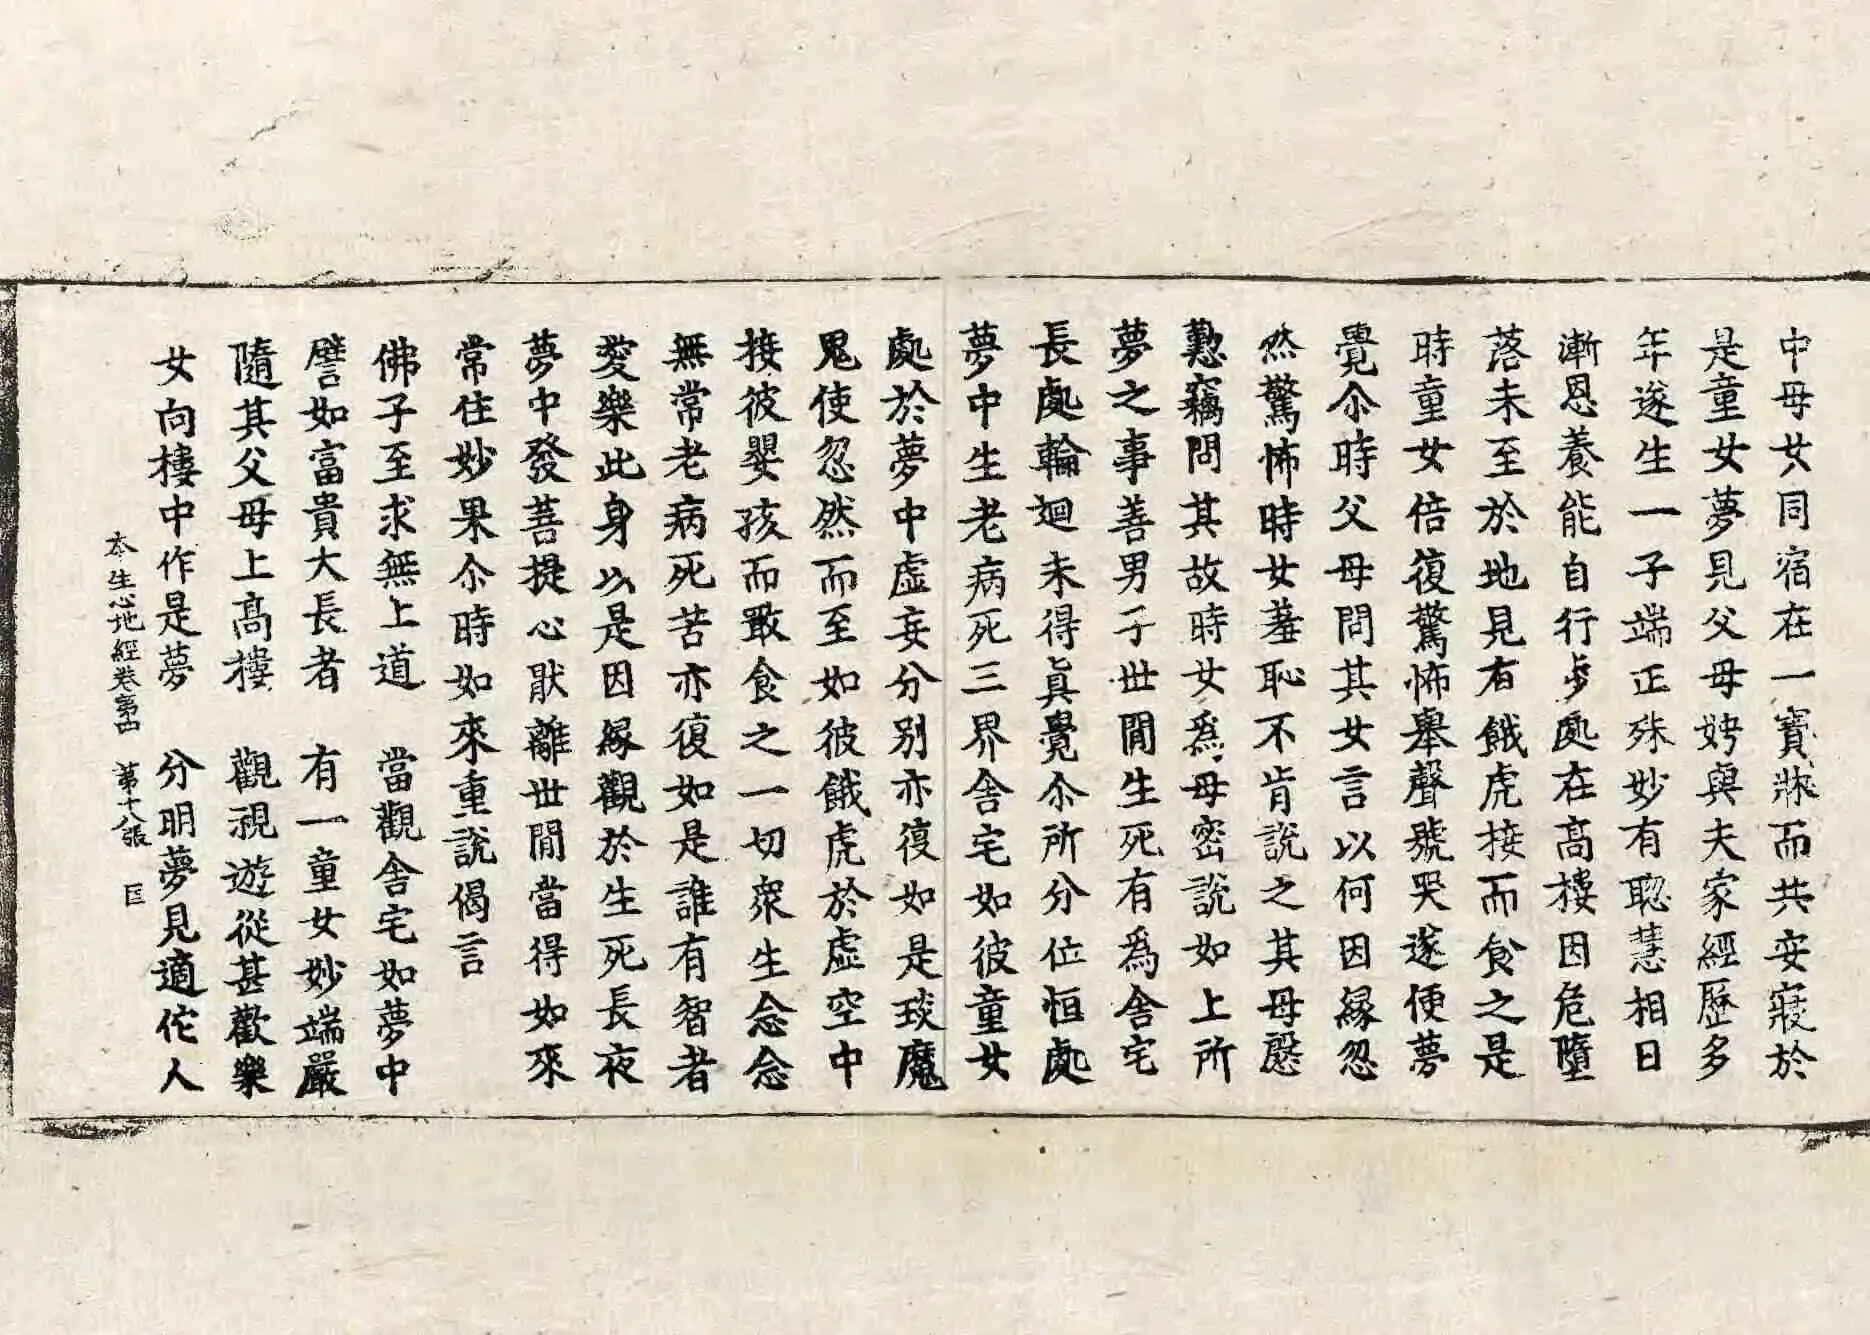 中母女同宿在一寶牀而共安寢於
是童女夢見父母娉與夫家經歷多
年遂生一子端正殊妙有聦慧相日
漸恩養能自行步處在髙樓因危墮
落未至於地見有餓虎接而食之是
時童女倍復驚怖舉聲號哭遂便夢
覺尒時父母問其女言以何因緣忽
然驚怖時女羞恥不肯說之其母慇
懃竊問其故時女爲母密說如上所
夢之事善男子世閒生死有爲舍宅
長處輪迴未得眞覺尒所分位恒處
夢中生老病死三界舍宅如彼童女
處於夢中虛妄分別亦復如是琰魔
鬼使忽然而至如彼餓虎於虛空中
接彼嬰孩而噉食之一切衆生念念
無常老病死苦亦復如是誰有智者
愛樂此身以是因緣觀於生死長夜
夢中發菩提心猒離世閒當得如來
常住妙果尒時如來重說偈言
佛子至求無上道　當觀舍宅如夢中
譬如富貴大長者　有一童女妙端嚴
隨其父母上髙樓　觀視遊從甚歡樂
女向樓中作是夢　分明夢見適佗人
本生心地經卷第四　第十八張　匡